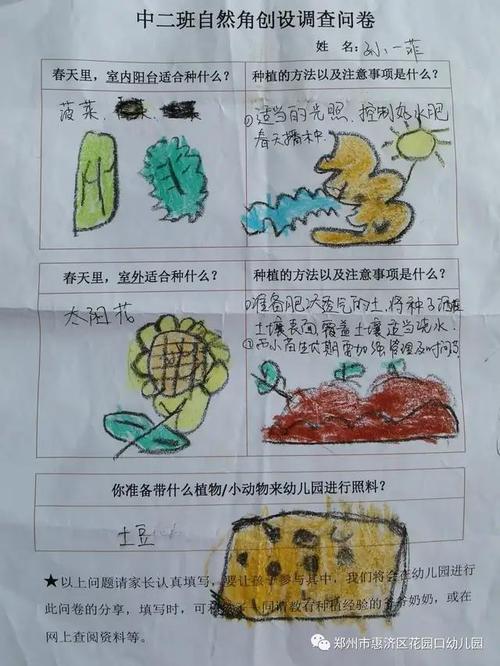 中二班自然角创设调查问卷
姓 名：孙一菲
春天里，室内阳台适合种什么？
菠菜、
种植的方法以及注意事项是什么？
①适当的光照、控制好水肥
春天播种.
春天里，室外适合种什么？
太阳花
种植的方法以及注意事项是什么？
①准备肥沃透气的土，将种子洒在
土壤表面覆盖土壤适当浇水.
小苗生长期要加强管理及时间
你准备带什么植物/小动物来幼儿园进行照料？
土豆
★以上问题请家长认真填写，要让孩子参与其中，我们将会在幼儿园进行
此问卷的分享，填写时，可 请教有种植经验的爷爷奶奶，或在
网上查阅资料等。
郑州市惠济区花园口幼儿园